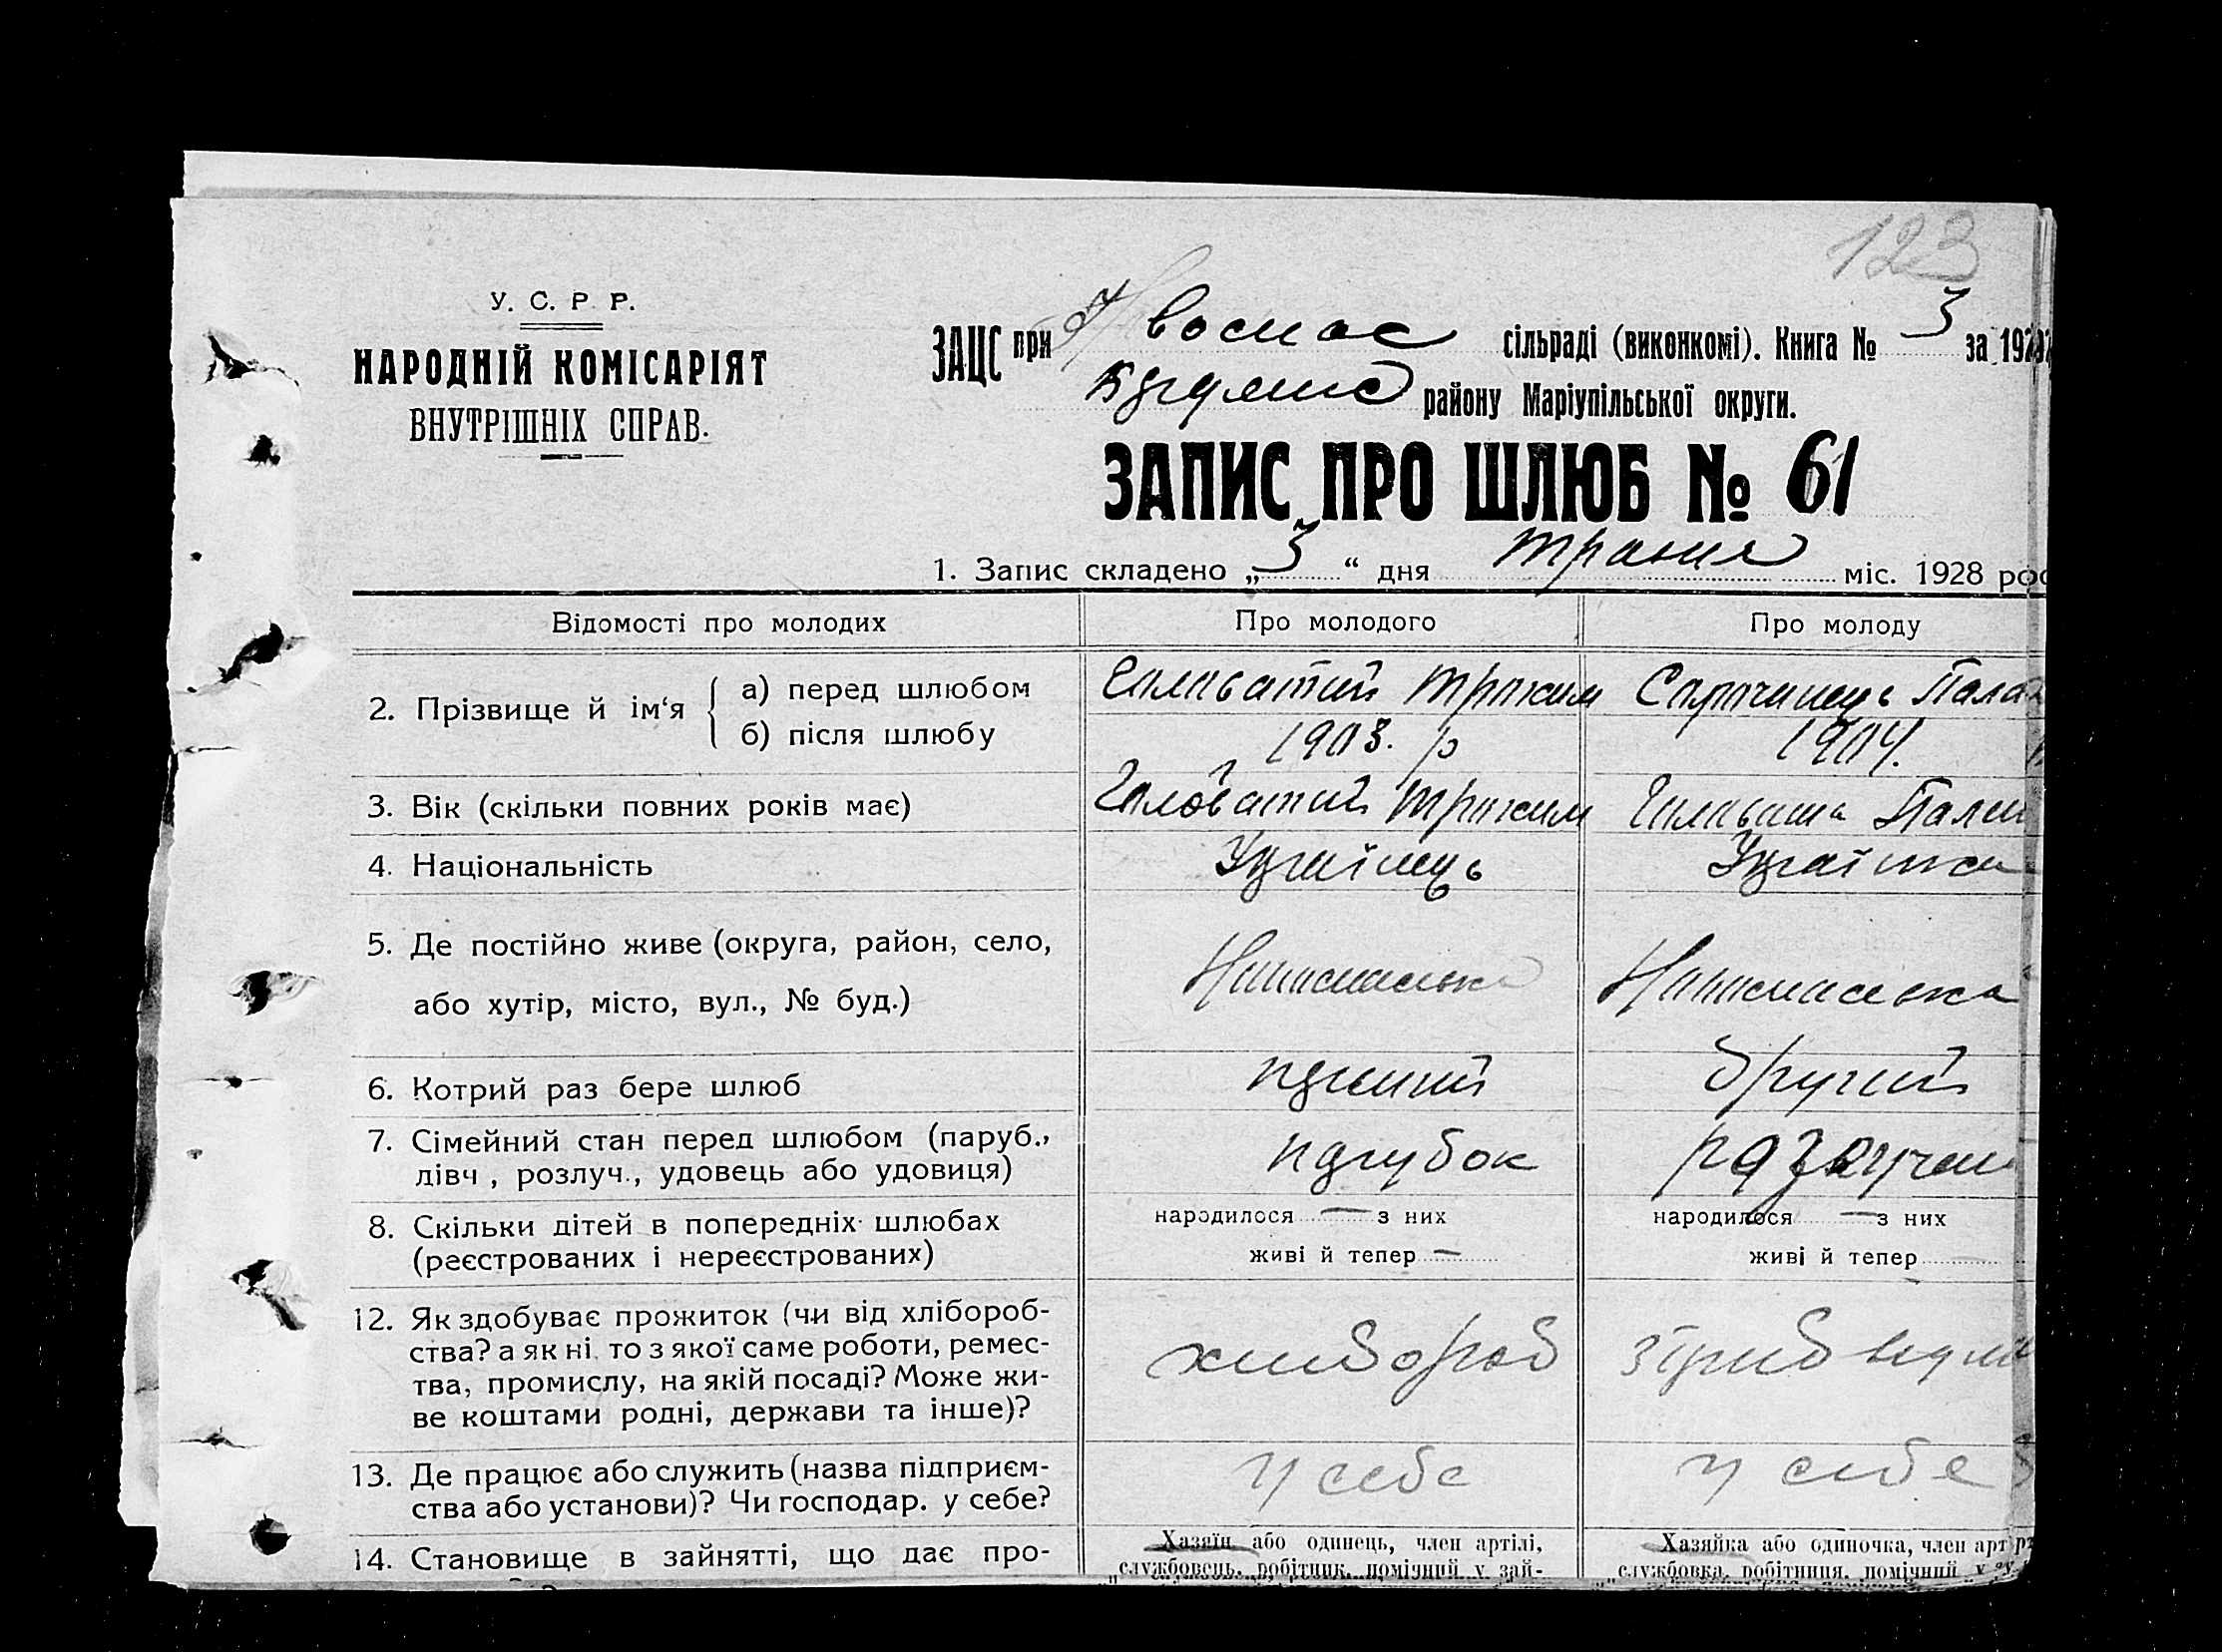 123
У. С. Р. Р.
НАРОДНІЙ КОМІСАРІЯТ
ВНУТРІШНІХ СПРАВ.
ЗАЦС при сільраді (виконкомі). Книга № 3 за 192
району Маріупільської округи.
ЗАПИС ПРО ШЛЮБ № 61
1. Запис складено „3“ дня травня міс. 1928 рос
Відомості про молодих Про молодого Про молоду
2. Прізвище й ім‘я а) перед шлюбом Головатий Трохим
б) після шлюбу 1903. р 1904.
3. Вік (скільки повних років має) Головатий Трохим Головата
4. Національність Українець Українка
5. Де постійно живе (округа, район, село,
або хутір, місто, вул., № буд.)
6. Котрий раз бере шлюб другий
7. Сімейний стан перед шлюбом (паруб.,
дівч , розлуч., удовець або удовиця) парубок
8. Скільки дітей в попередніх шлюбах народилося — з них народилося — з них
(реєстрованих і нереєстрованих) живі й тепер — живі й тепер
12. Як здобуває прожиток (чи від хлібороб-
ства? а як ні то з якої саме роботи, ремес-
тва, промислу, на якій посаді? Може жи-
ве коштами родні, держави та інше)?
хлибороб
13. Де працює або служить (назва підприєм-
ства або установи)? Чи господар. у себе?
у себе у себе
14. Становище в зайнятті, що дає про-
Хазяїн або одинець, член артілі,
службовець, робітник, помічний у зай-
Хазяйка або одиночка, член арт
службовка, робітниця, помічний у